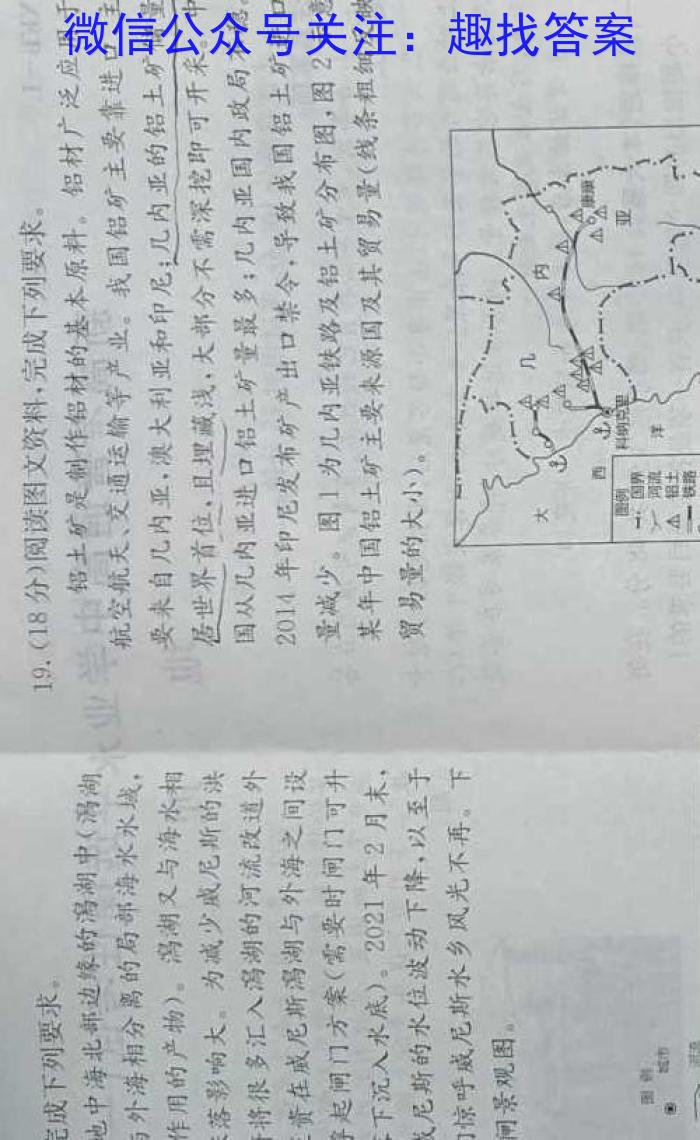 微信公众号关注：趣找答案
19.(18分)阅读图文资料,完成下列要求。
铝土矿是制作铝材的基本原料。铝材广泛应
航空航天、交通运输等产业。我国铝矿主要靠进口
要来自几内亚,澳大利亚和印尼;几内亚的铝土矿
居世界首位,且埋藏浅,大部分不需深挖即可开采。
国从几内亚进口铝土矿量最多;几内亚国内政局
2014年印尼发布矿产出口禁令,导致我国铝土矿
量减少。图1为几内亚铁路及铝土矿分布图,图2
某年中国铝土矿主要来源国及其贸易量(线条粗细
贸易量的大小)。
几
内
亚
康康
科纳克里
大
西
洋
图例
国界
河流
铝土
铁路
完成下列要求。
地中海北部边缘的潟湖中(潟湖
与外海相分离的局部海水水域,
作用的产物)。潟湖又与海水相
落影响大。为减少威尼斯的洪
将很多汇入潟湖的河流改道外
资在威尼斯潟湖与外海之间设
起闸门方案(需要时闸门可升
下沉入水底)。2021年2月末,
威尼斯的水位波动下降,以至于
们惊呼威尼斯水乡风光不再。下
闸景观图。
图例
城市